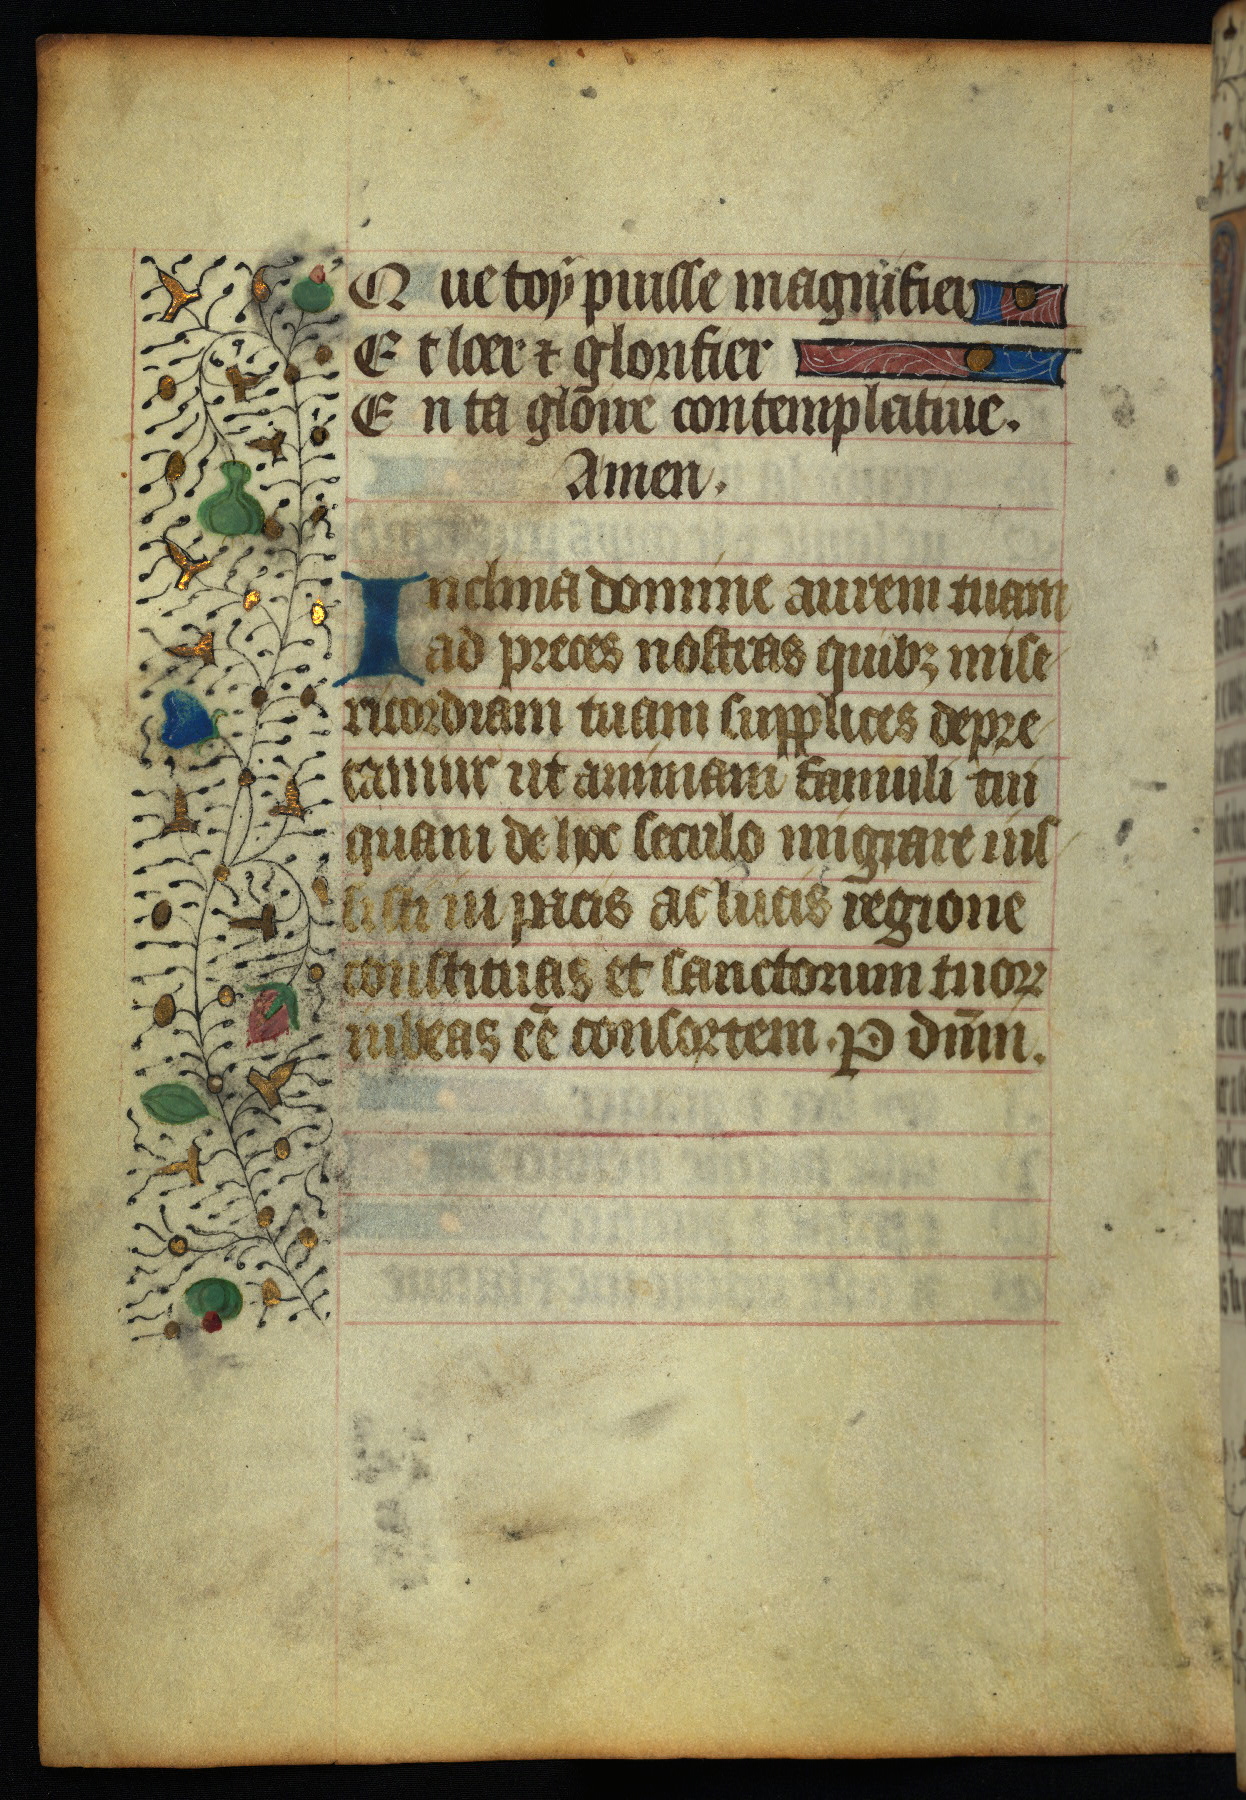 Que toy puisse magnifier
Et loer ⁊ glorifier
En ta gloire contemplatiue.
Amen.
Inclina domine aurem tuam
ad preces nostras quibꝫ mise
ricordiam tuam supplices depre
camur ut animam famuli tui
quam de hoc seculo migrare ius
sisti in pacis ac lucis regione
constituas et sanctorum tuoꝝ
iubeas eē consortem. P dn̄m.